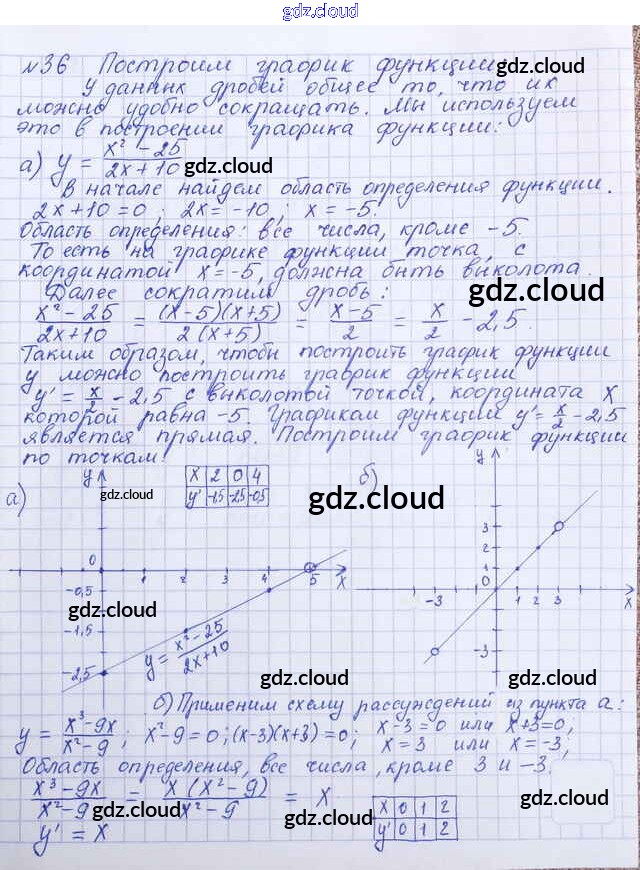 gdz.cloud
№36 Построим график функции gdz.cloud
У данных дробей общее то, что их
можно удобно сокращать. Мы используем
это в построении графика функции:
а) y = x² - 25 / 2x + 10 gdz.cloud
В начале найдем область определения функции.
2x+10 = 0 ; 2x = -10 ; x = -5.
Область определения: все числа, кроме -5.
То есть на графике функции точка, с
координатой x = -5, должна быть выколота.
Далее сократим дробь: gdz.cloud
x² - 25 / 2x+10 = (x-5)(x+5) / 2(x+5) = x-5 / 2 = x / 2 - 2,5.
Таким образом, чтобы построить график функции
y можно построить график функции
y' = x/2 - 2,5 с выколотой точкой, координата x
которой равна -5. Графикам функции y' = x/2 - 2,5
является прямая. Построим график функции
по точкам:
а) y gdz.cloud
x 2 0 4
y' -1,5 -2,5 -0,5
gdz.cloud
0 5 x
-0,5
gdz.cloud
-1,5
-2,5
y = x² - 25 / 2x+10
б) y
3
2
1
0
-3 1 2 3 x
-3
gdz.cloud
gdz.cloud
б) Применим схему рассуждений из пункта а:
y = x³-9x / x²-9 ; x²-9 = 0 ; (x-3)(x+3) = 0 ; x-3 = 0 или x+3 = 0,
gdz.cloud
x = 3 или x = -3,
Область определения, все числа, кроме 3 и -3.
x³-9x / x²-9 = x (x²-9) / x²-9 = x
gdz.cloud
gdz.cloud
x 0 1 2
y' 0 1 2
y' = x